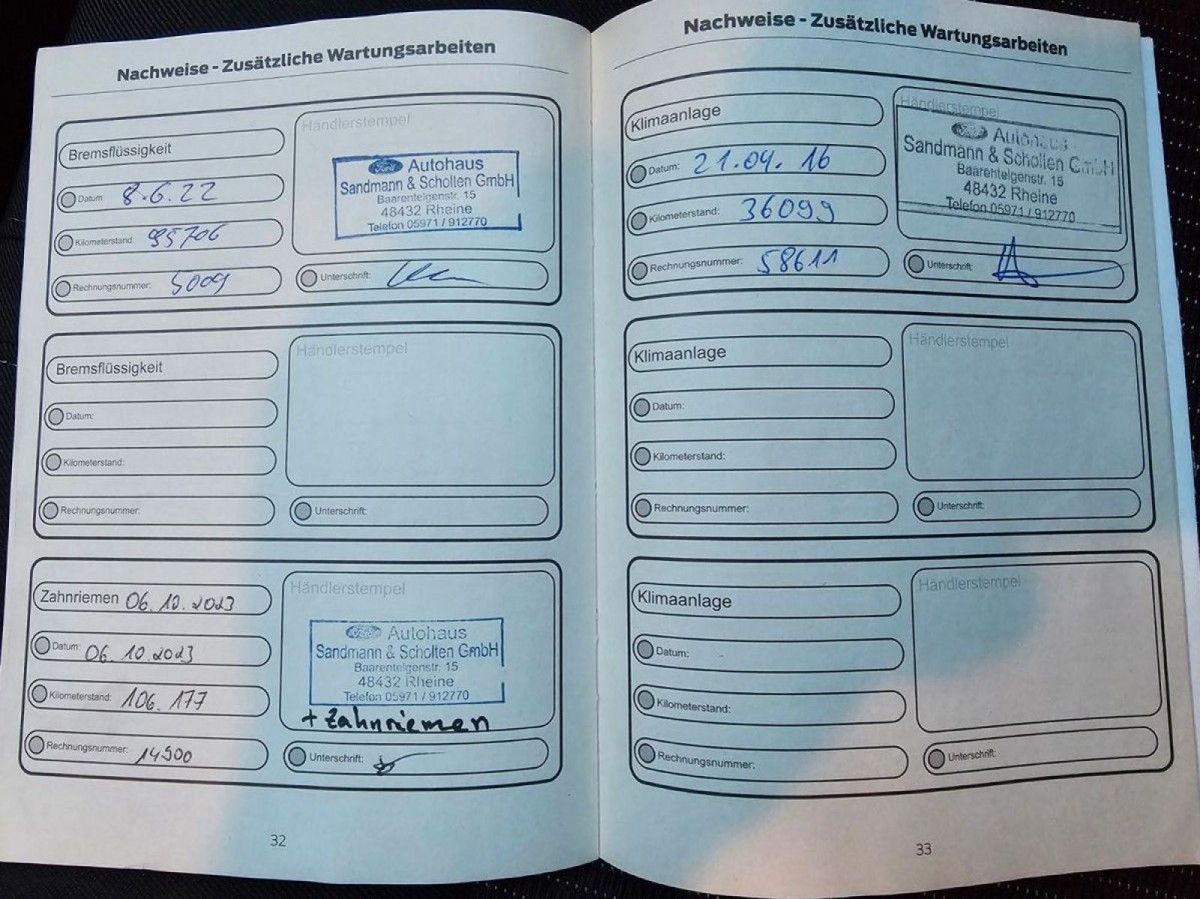 Nachweise - Zusätzliche Wartungsarbeiten
Bremsflüssigkeit
Datum: 8.6.22
Kilometerstand: 95706
Rechnungsnummer: 5009
Händlerstempel
Ford Autohaus
Sandmann & Schollen GmbH
Baarentelgenstr. 15
48432 Rheine
Telefon 05971 / 912770
Unterschrift:
Bremsflüssigkeit
Datum:
Kilometerstand:
Rechnungsnummer:
Händlerstempel
Unterschrift:
Zahnriemen 06.10.2023
Datum: 06.10.2023
Kilometerstand: 106.177
Rechnungsnummer: 14900
Händlerstempel
Ford Autohaus
Sandmann & Schollen GmbH
Baarentelgenstr. 15
48432 Rheine
Telefon 05971 / 912770
+ Zahnriemen
Unterschrift:
32
Nachweise - Zusätzliche Wartungsarbeiten
Klimaanlage
Datum: 21.04.16
Kilometerstand: 36099
Rechnungsnummer: 58611
Händlerstempel
Ford Autohaus
Sandmann & Schollen GmbH
Baarentelgenstr. 15
48432 Rheine
Telefon 05971 / 912770
Unterschrift:
Klimaanlage
Datum:
Kilometerstand:
Rechnungsnummer:
Händlerstempel
Unterschrift:
Klimaanlage
Datum:
Kilometerstand:
Rechnungsnummer:
Händlerstempel
Unterschrift:
33